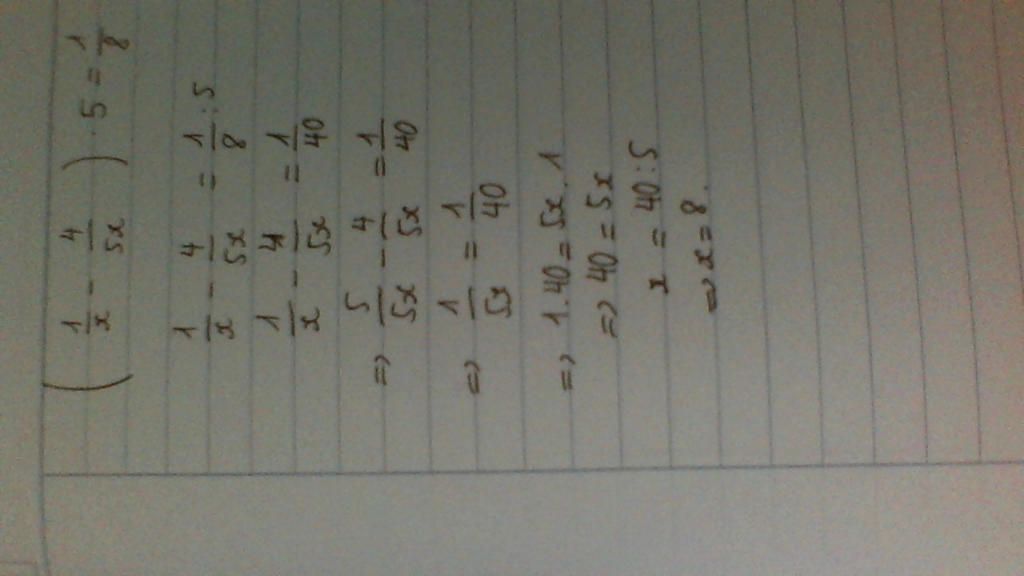 (1/x - 4/5x) . 5 = 1/8
1/x - 4/5x = 1/8 : 5
1/x - 4/5x = 1/40
=> 5/5x - 4/5x = 1/40
=> 1/5x = 1/40
=> 1.40 = 5x.1
=> 40 = 5x
x = 40:5
=> x = 8.